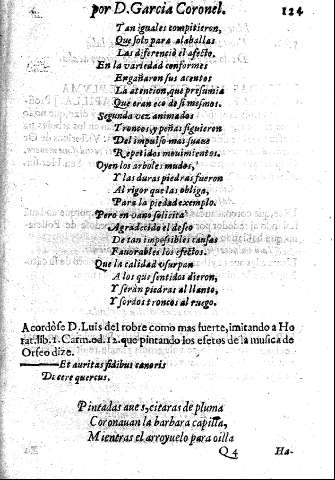 por D. Garcia Coronel. 124
Tan iguales compitieron,
Que solo para alaballas
Las diferenciò el afecto.
En la variedad conformes
Engañaron sus acentos
La atencion, que presumia
Que eran eco de si mesmos.
Segunda vez animados
Troncos, y peñas siguieron
Del impulso mas suaue
Repetidos mouimientos.
Oyen los arboles mudos,
Y las duras piedras fueron
Al rigor que las obliga,
Para la piedad exemplo.
Pero en vano solicita
Agradecido el deseo
De tan impossibles causas
Fauorables los efectos.
Que la calidad vsurpan
A los que sentidos dieron,
Y seràn piedras al llanto,
Y sordos troncos al ruego.
Acordòse D. Luis del robre como mas fuerte, imitando a Ho
rat. lib. 1. Carm. od. 12. que pintando los efetos de la musica de
Orfeo dize.
Et auritas fidibus canoris
Ducere quercus.
Pintadas aues, citaras de pluma
Coronauan la barbara capilla,
Mientras el arroyuelo para oilla
Q4 Ha-